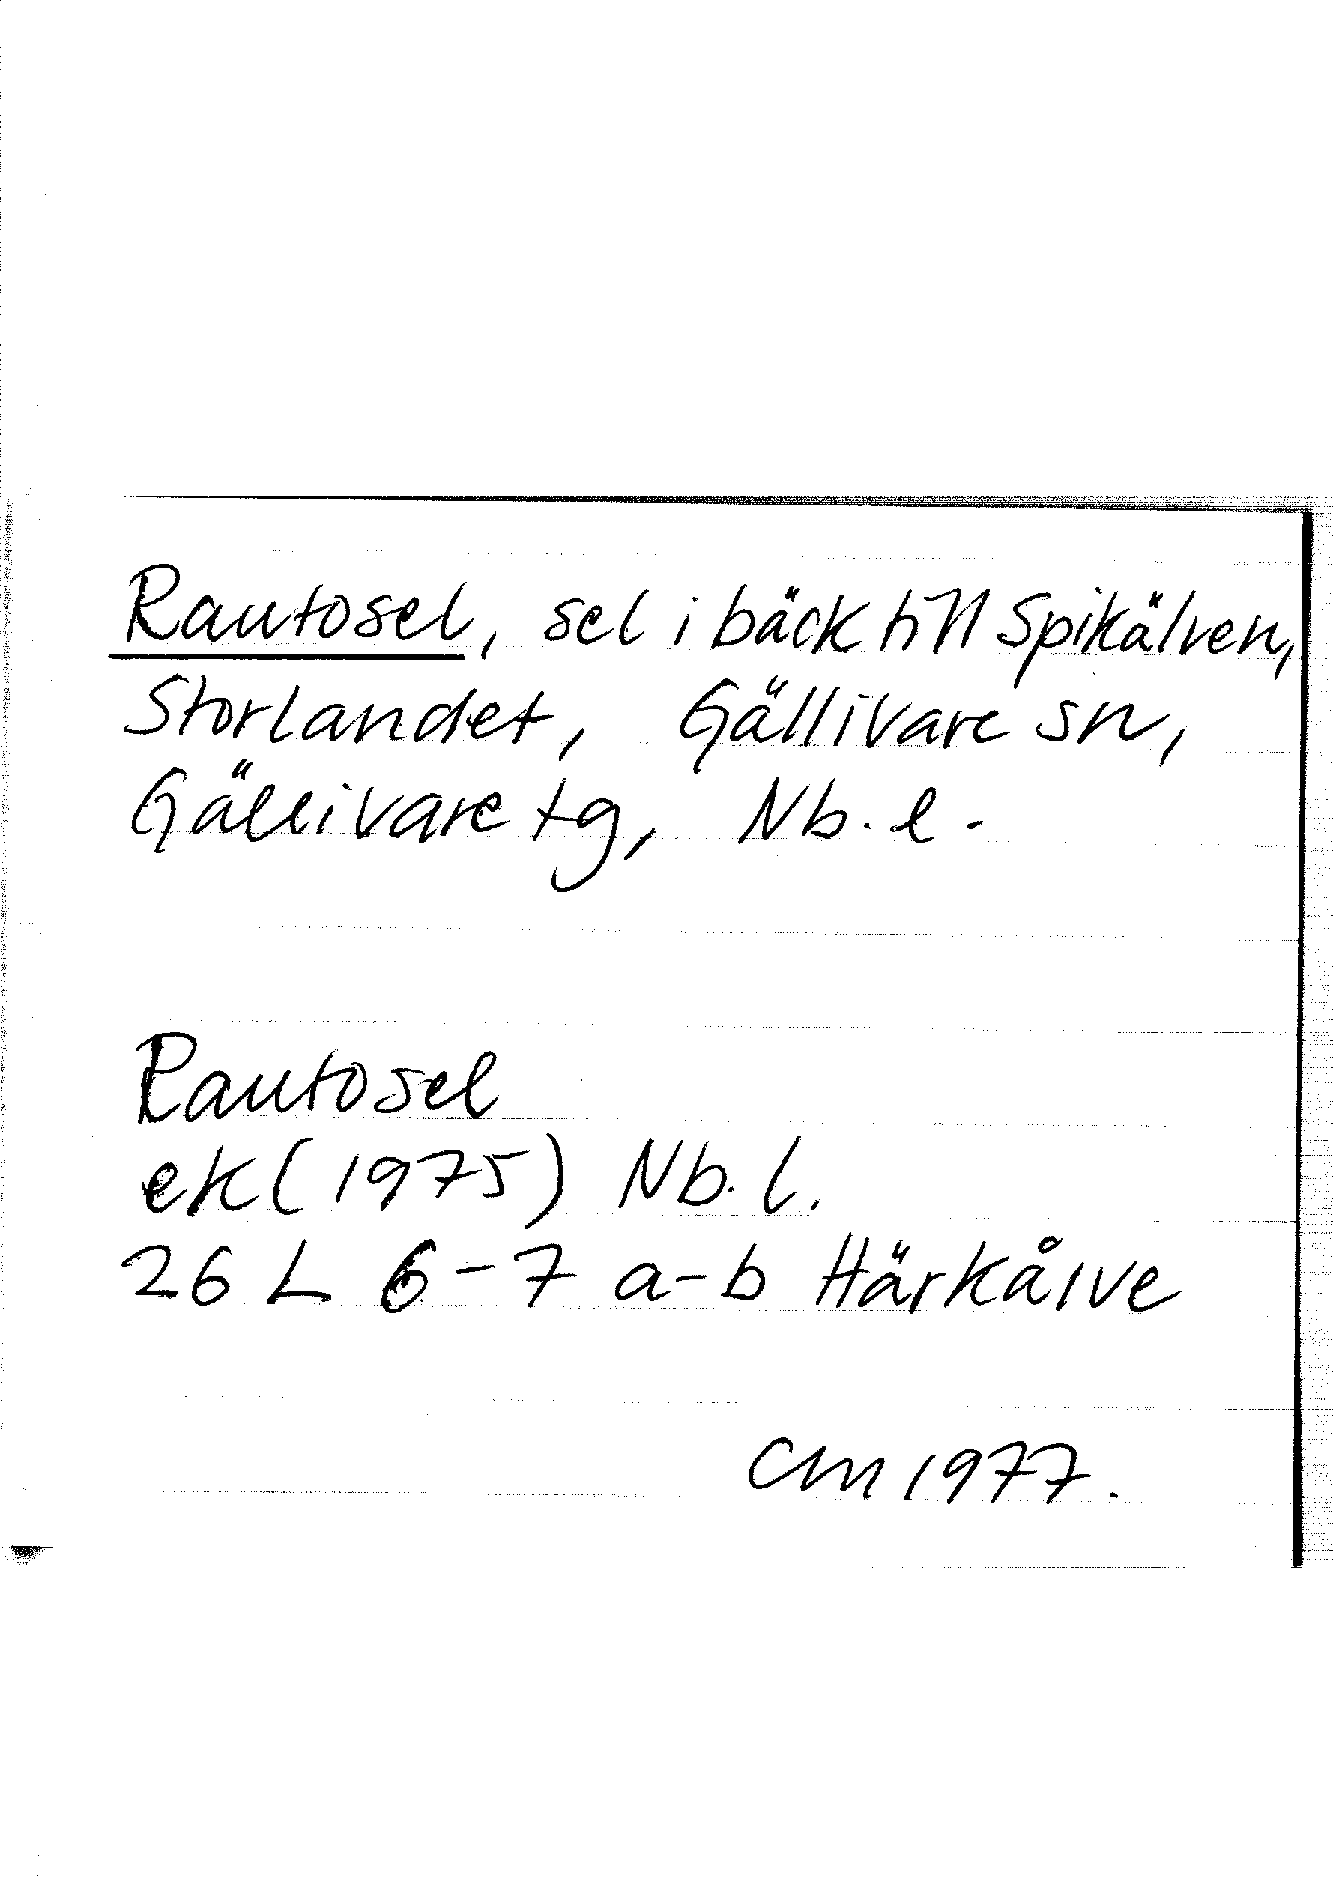 Rautosel, sel i bäck till Spikälven,
Storlandet, Gällivare sn,
Gällivare tg, Nb. l.
Rautosel
ek (1975) Nb. l.
26 L 6-7 a-b Härkålve
CM 1977.